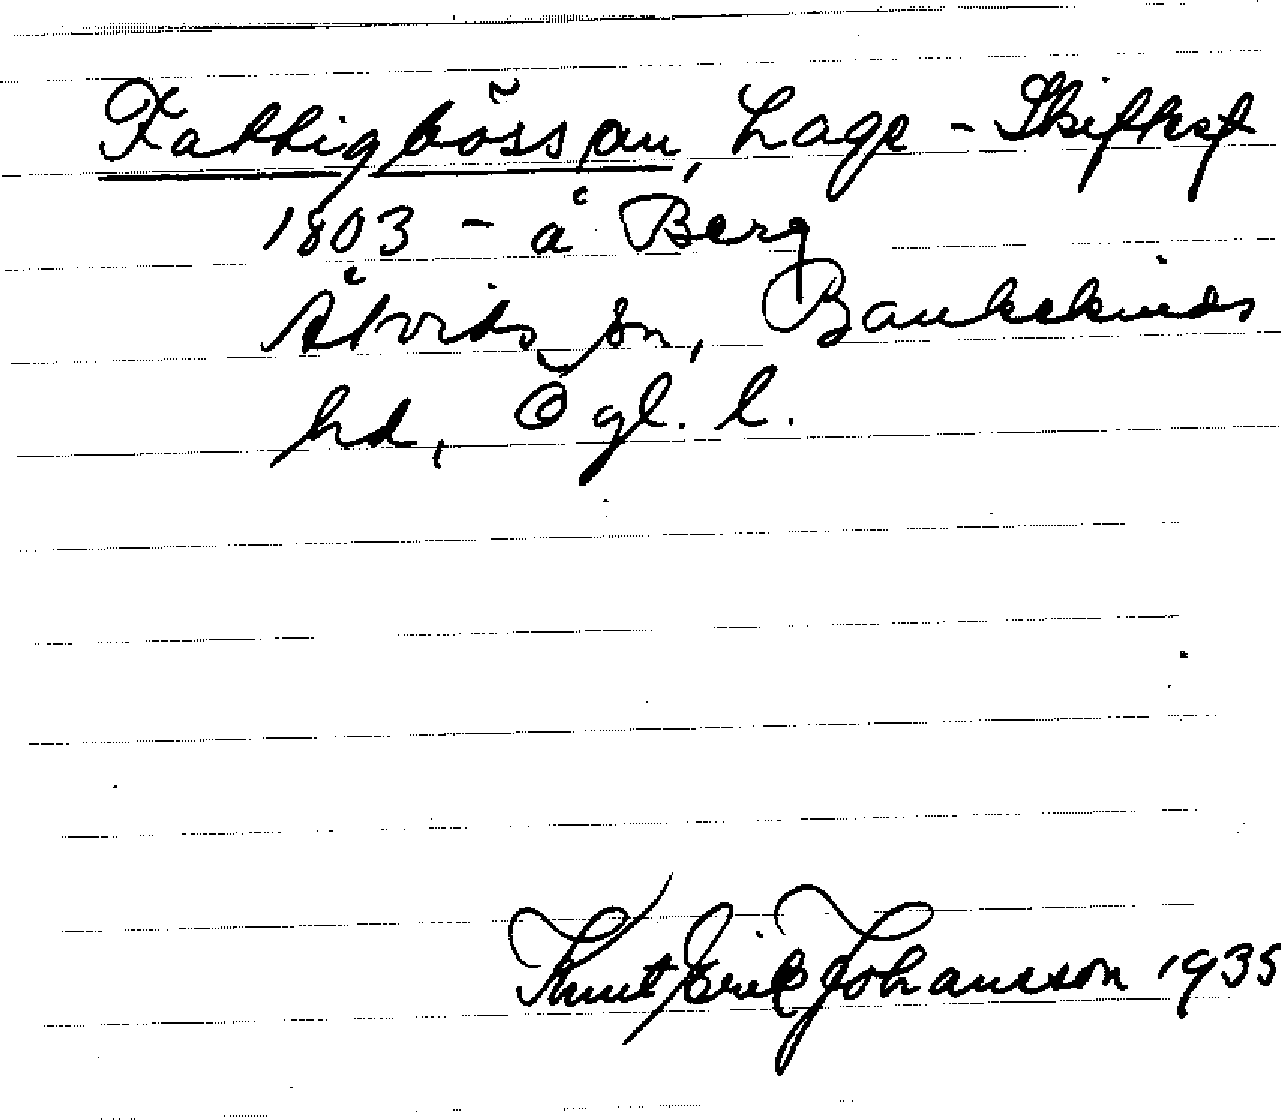 Fattigbössan, Lage - Skifteskf
1803 - å Berg
Åtvids sn, Bankekinds
hd, Ögl. l.
Knut Erik Johansson 1935